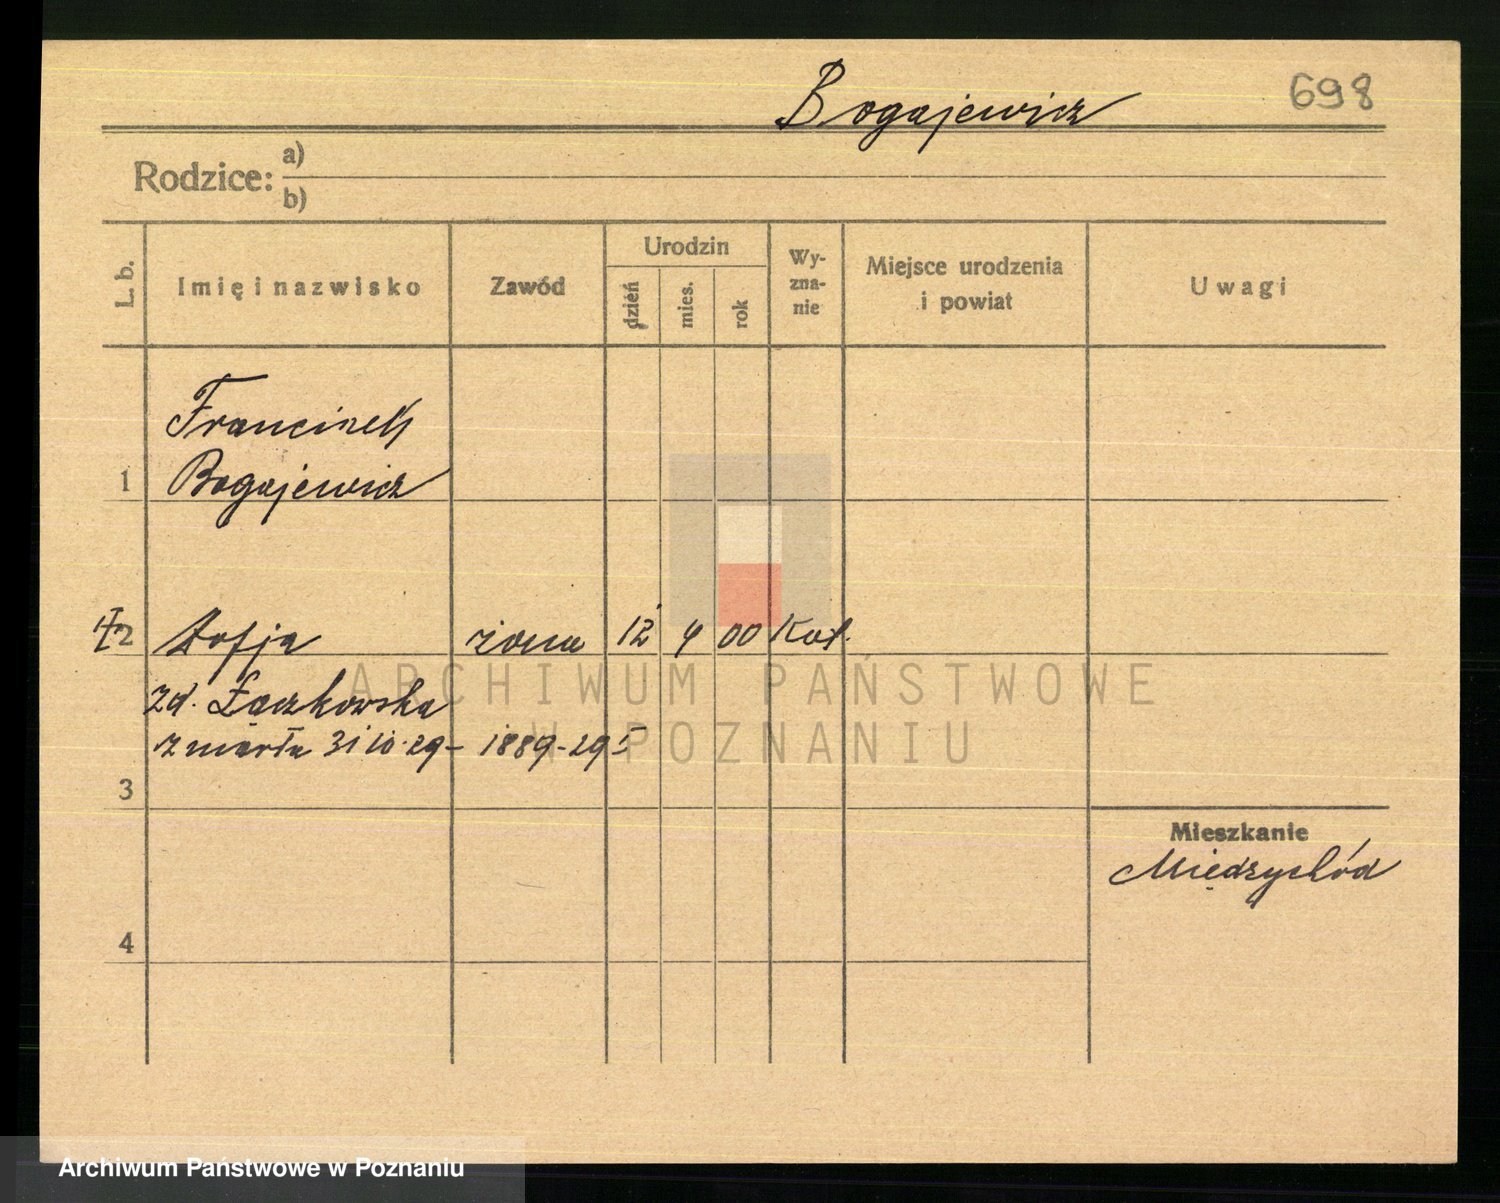 Bogajewicz
698
Rodzice: a)
b)
L. b.
Imię i nazwisko
Zawód
Urodzin
dzień
mies.
rok
Wy-
zna-
nie
Miejsce urodzenia
i powiat
Uwagi
Franciszek
1 Bogajewicz
2 Zofja żona 12 4 00 Kat.
zd. Łączkowska
zmarła 31 10. 29 - 1889 - 29
3
ARCHIWUM PAŃSTWOWE
W POZNANIU
Mieszkanie
Międzychód
4
Archiwum Państwowe w Poznaniu